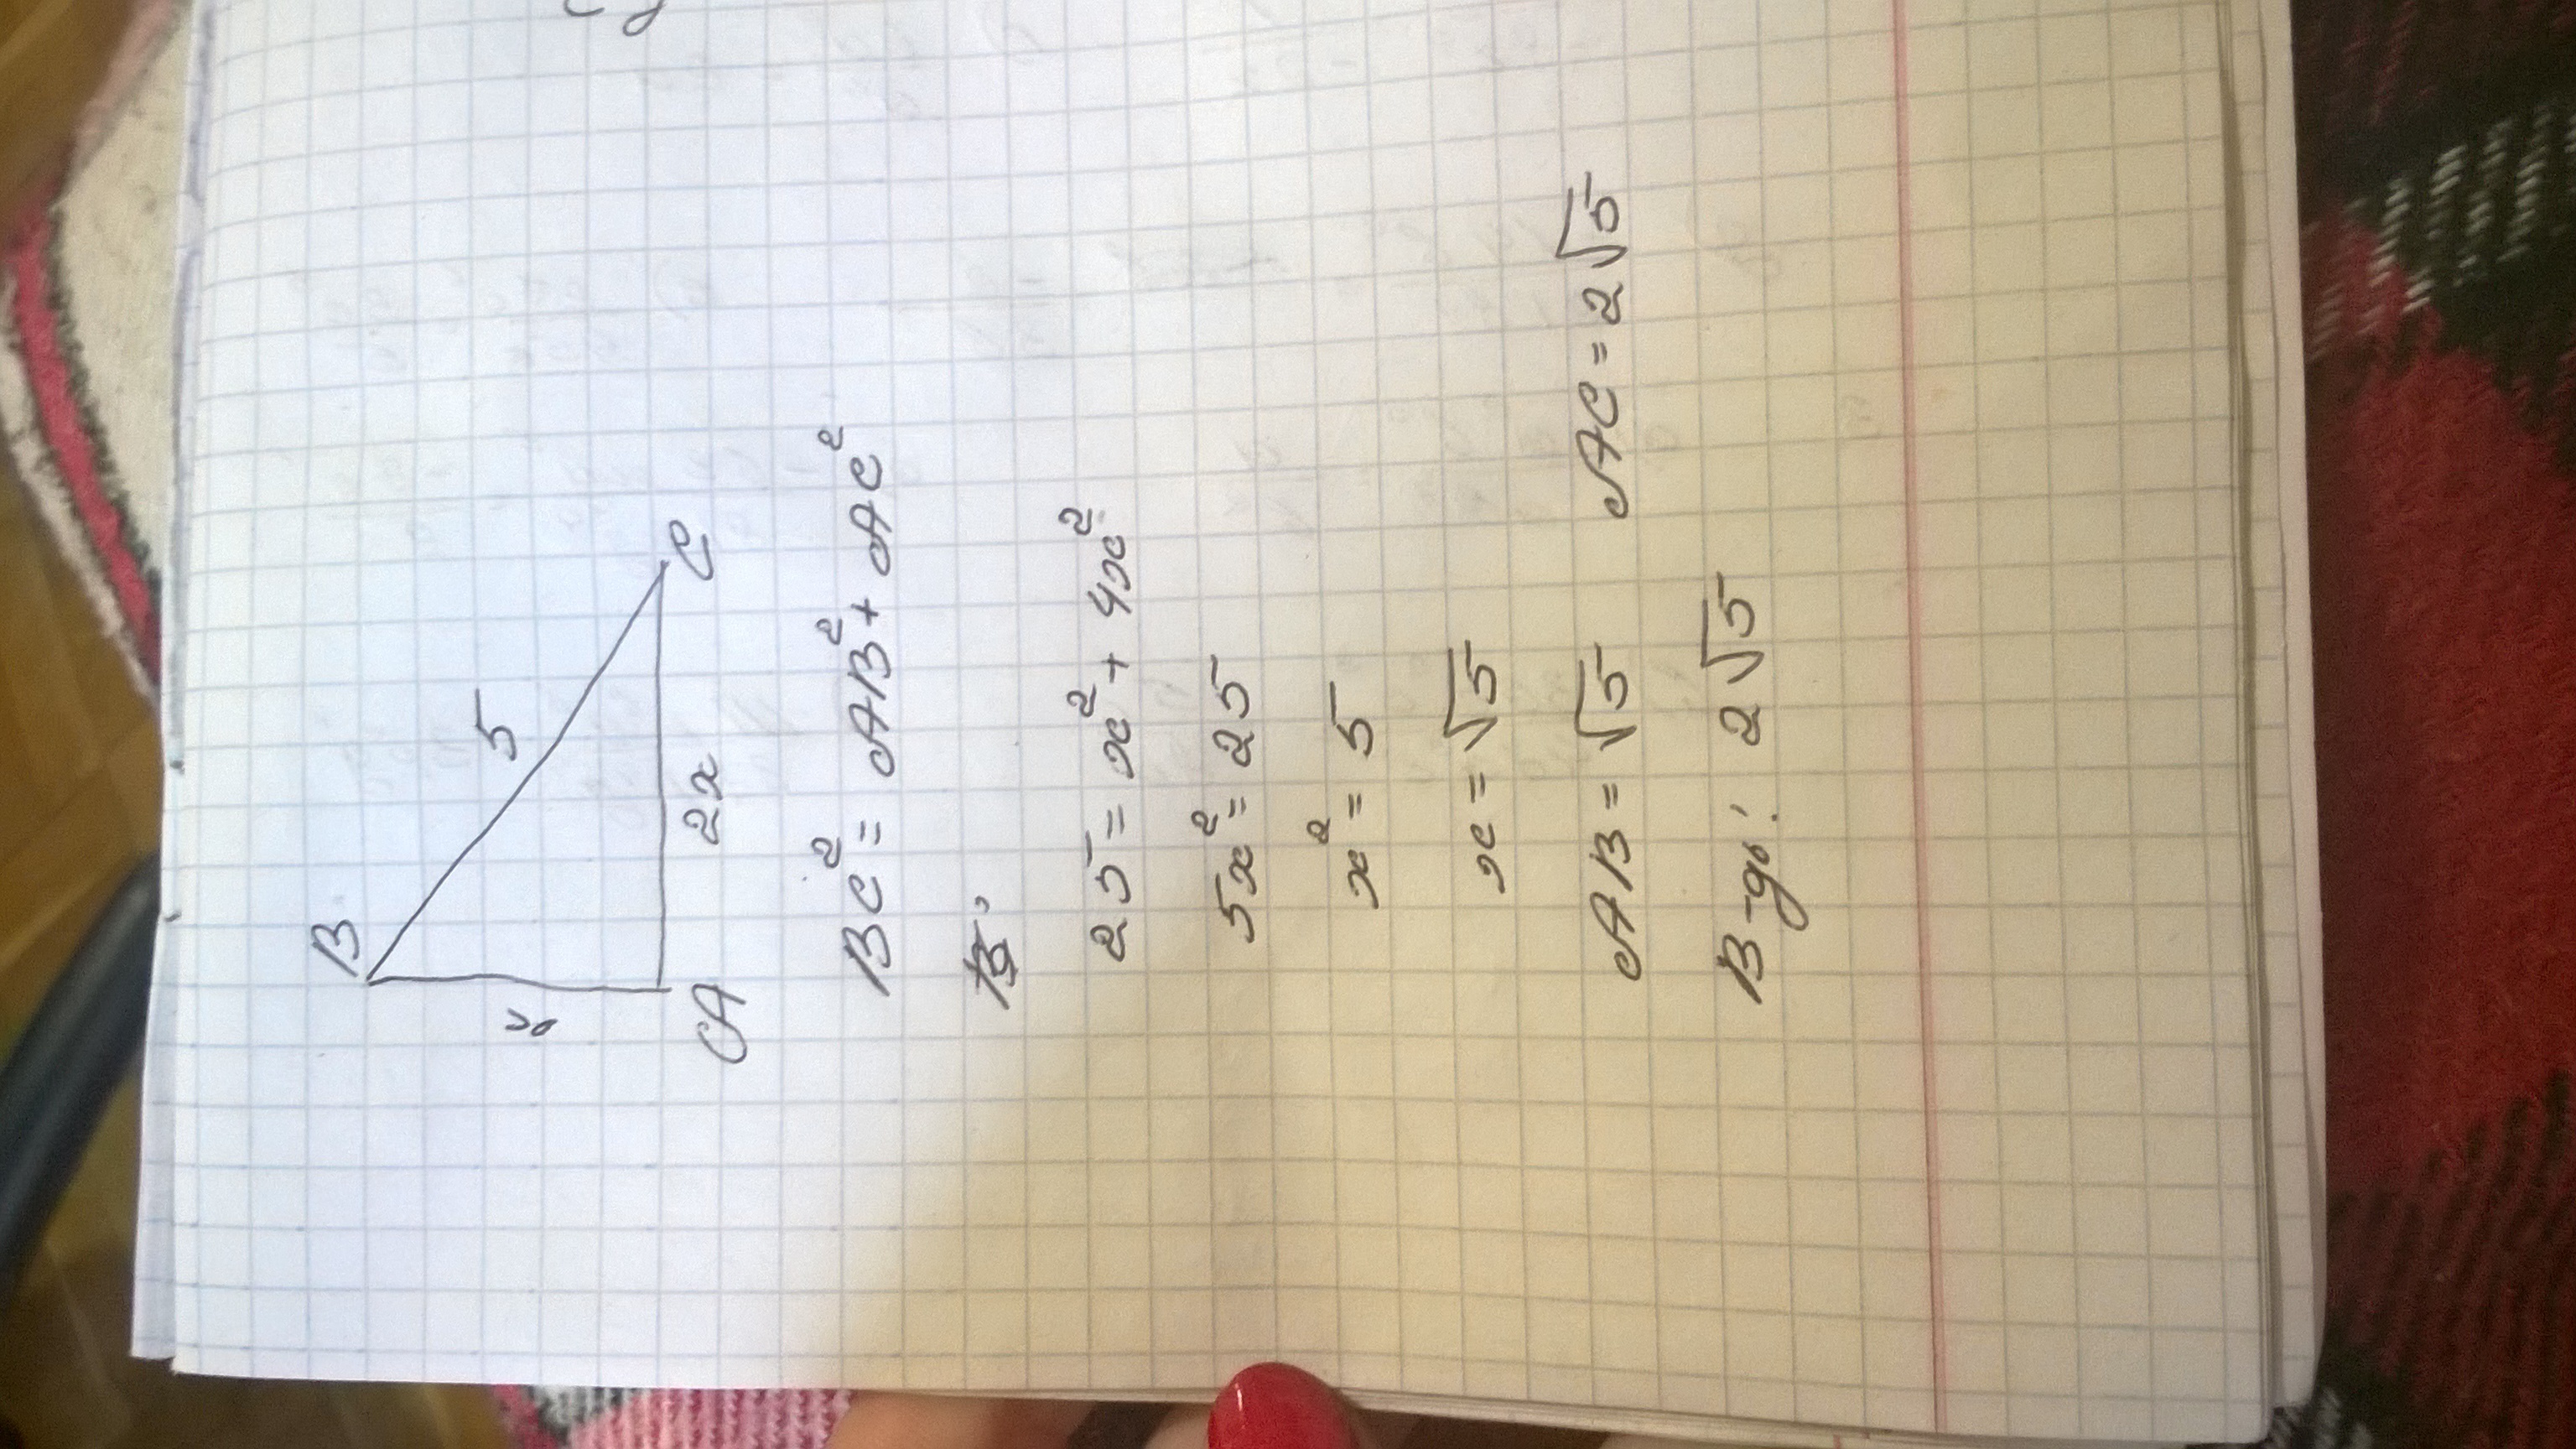 B
5
x
C
A
2x
BC² = AB² + AC²
25 = x² + 4x²
5x² = 25
x² = 5
x = √5
AB = √5 AC = 2√5
В-дь: 2√5